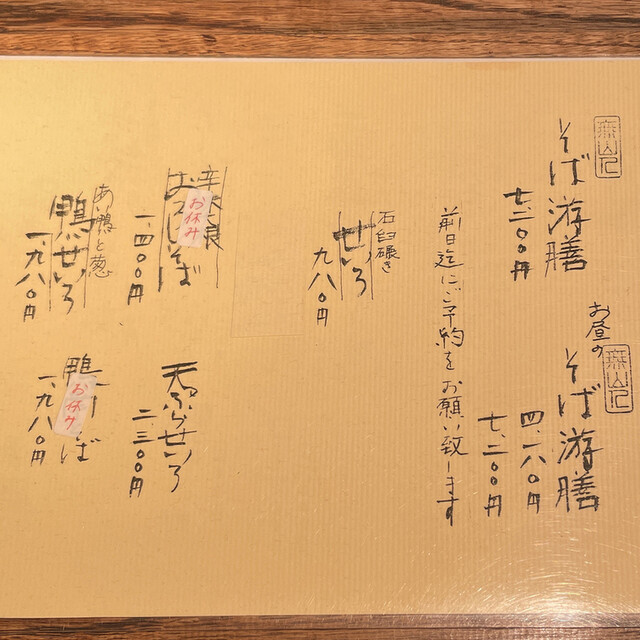 無山人
そば游膳
七、二〇〇円
お昼の
無山人
そば游膳
四、一八〇円
七、二〇〇円
前日迄にご予約をお願い致します
石臼碾き
せいろ
九八〇円
辛味大根
お休み
おろしそば
一、四〇〇円
天ぷらせいろ
二、三〇〇円
あい鴨と葱
鴨せいろ
一、九八〇円
お休み
一、九八〇円